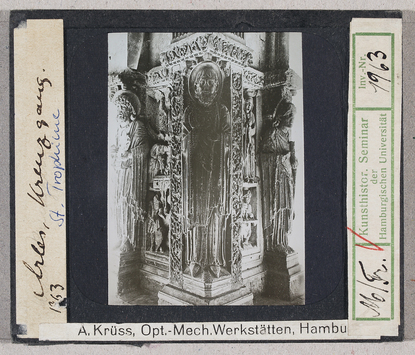 Arles, Kreuzgang.
St. Trophime
1363
Inv.-Nr.
1963
Kunsthistor. Seminar
der
Hamburgischen Universität
A. Krüss, Opt.-Mech. Werkstätten, Hambu